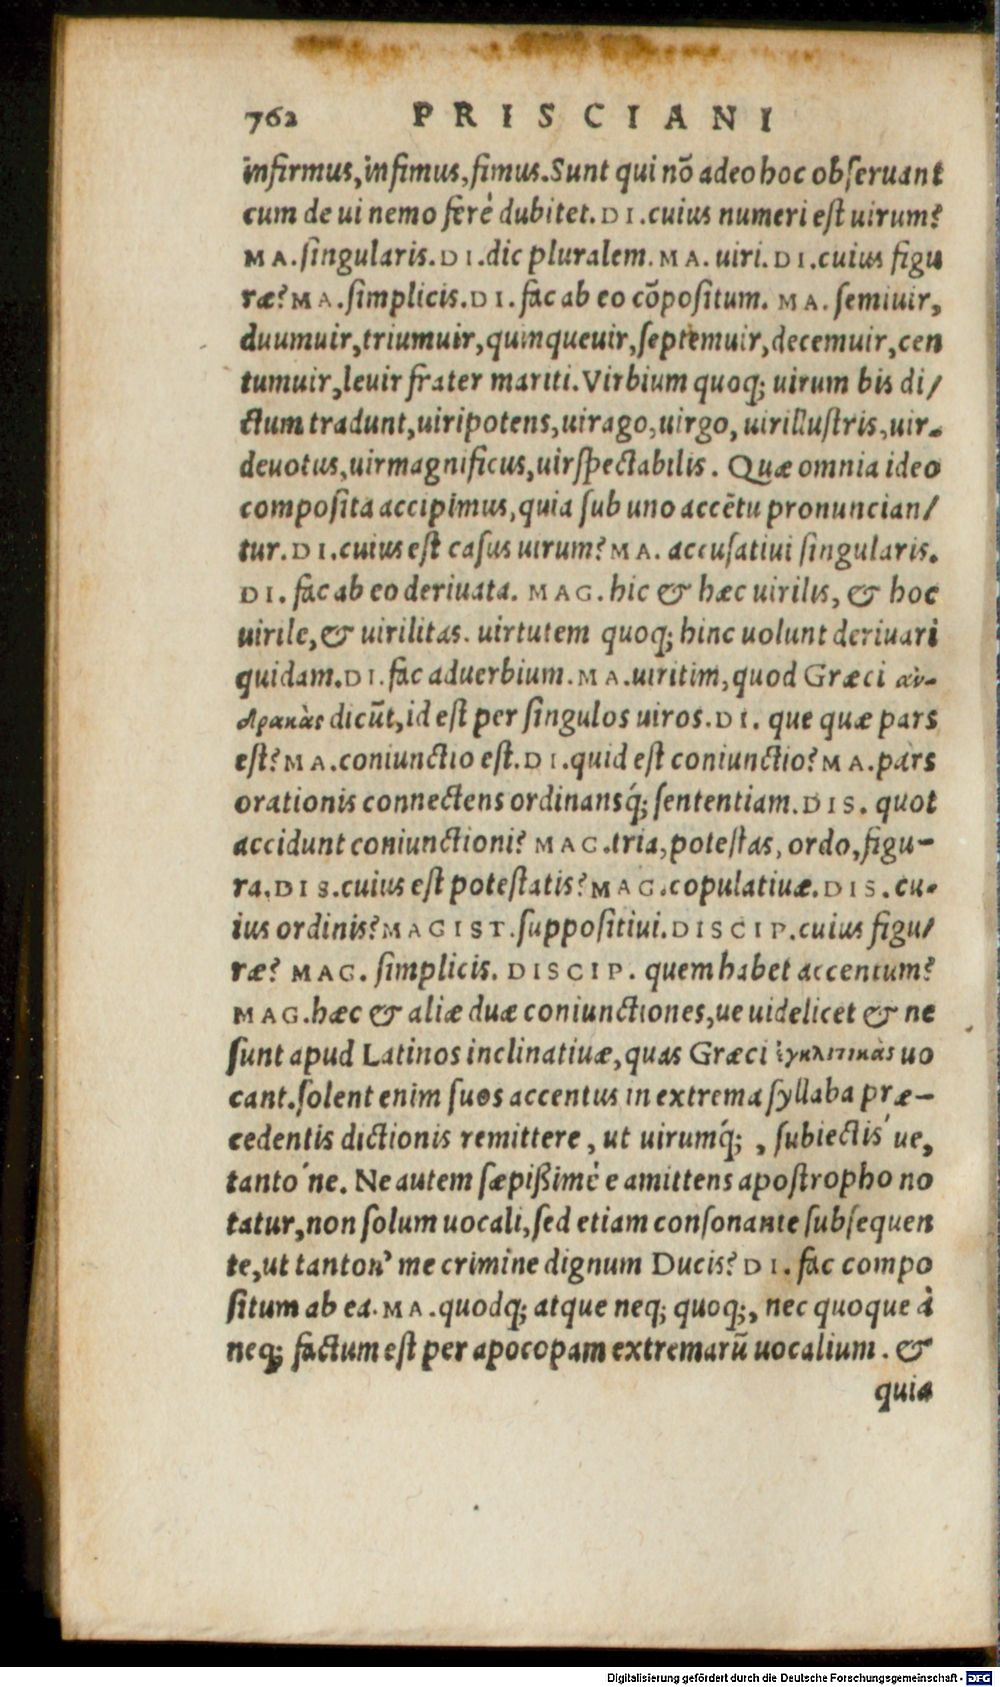 762 PRISCIANI
infirmus, infimus, fimus. Sunt qui nõ adeo hoc obſeruant
cum de ui nemo ferè dubitet. DI. cuius numeri eſt uirum?
MA. ſingularis. DI. dic pluralem. MA. uiri. DI. cuius figu
ræ? MA. ſimplicis. DI. fac ab eo cõpoſitum. MA. ſemiuir,
duumuir, triumuir, quinqueuir, ſeptemuir, decemuir, cen
tumuir, leuir frater mariti. Virbium quoq; uirum bis di/
ctum tradunt, uiripotens, uirago, uirgo, uirilluſtris, uir-
deuotus, uirmagnificus, uirſpectabilis. Quæ omnia ideo
compoſita accipimus, quia ſub uno accẽtu pronuncian/
tur. DI. cuius eſt caſus uirum? MA. accuſatiui ſingularis.
DI. fac ab eo deriuata. MAG. hic & hæc uirilis, & hoc
uirile, & uirilitas. uirtutem quoq; hinc uolunt deriuari
quidam. DI. fac aduerbium. MA. uiritim, quod Græci ἀν-
δρακὰς dicũt, id eſt per ſingulos uiros. DI. que quæ pars
eſt? MA. coniunctio eſt. DI. quid eſt coniunctio? MA. pars
orationis connectens ordinansq́; ſententiam. DIS. quot
accidunt coniunctioni? MAG. tria, poteſtas, ordo, figu-
ra. DIS. cuius eſt poteſtatis? MAG. copulatiuæ. DIS. cu-
ius ordinis? MAGIST. ſuppoſitiui. DISCIP. cuius figu/
ræ? MAG. ſimplicis. DISCIP. quem habet accentum?
MAG. hæc & aliæ duæ coniunctiones, ue uidelicet & ne
ſunt apud Latinos inclinatiuæ, quas Græci ἐγκλιτικὰς uo
cant. ſolent enim ſuos accentus in extrema ſyllaba præ-
cedentis dictionis remittere, ut uirumq́;, ſubiectis´ue,
tanto´ne. Ne autem ſæpißimè e amittens apoſtropho no
tatur, non ſolum uocali, ſed etiam conſonante ſubſequen
te, ut tanton’ me crimine dignum Ducis? DI. fac compo
ſitum ab ea. MA. quodq; atque neq; quoq;, nec quoque à
neq; factum eſt per apocopam extremarũ uocalium. &
quia
Digitalisierung gefördert durch die Deutsche Forschungsgemeinschaft - DFG